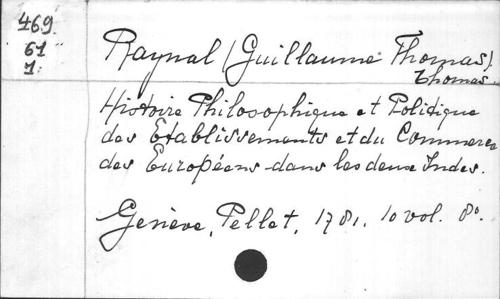 469.
61
1.
Raynal (Guillaume Thomas).
Thomas.
Histoire Philosophique et Politique
des Etablissements et du Commerce
des Européens dans les deux Indes.
Genève, Pellet, 1781. 10 vol. 8º.